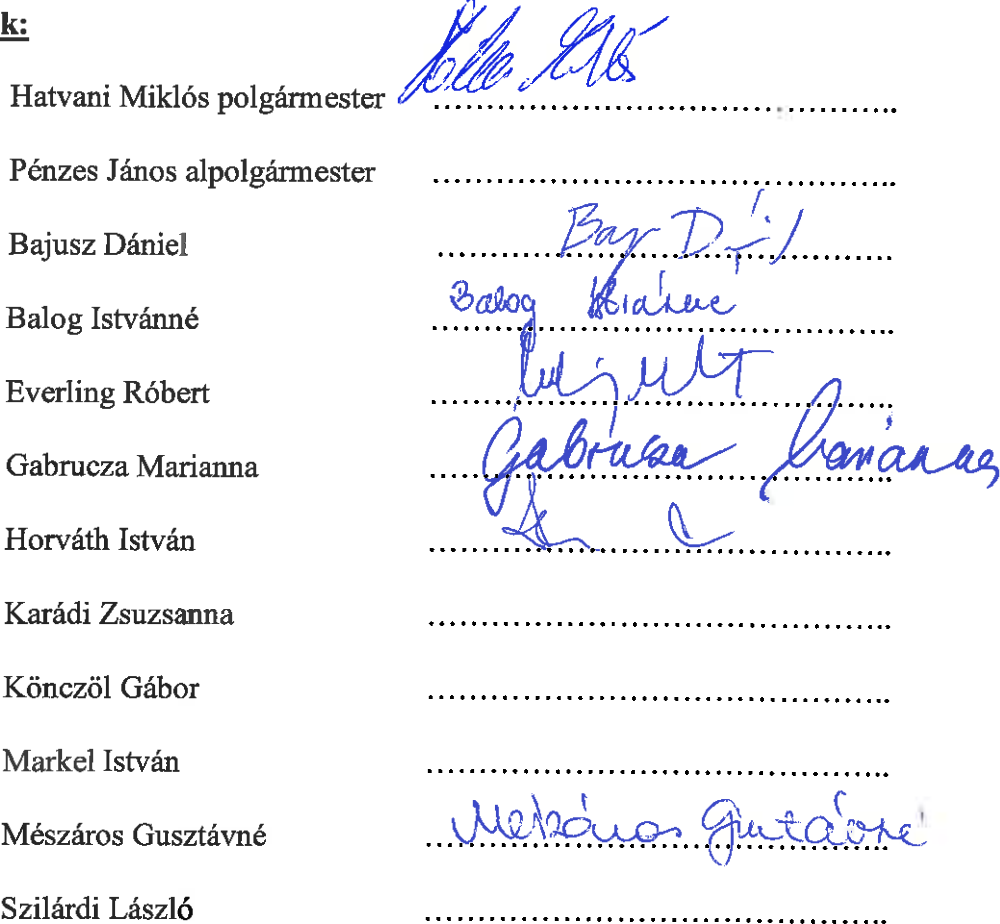 k:
Hatvani Miklós polgármester ................................................
Pénzes János alpolgármester ................................................
Bajusz Dániel ................................................
Balog Istvánné ................................................ Balog Istvánné
Everling Róbert ................................................
Gabrucza Marianna ................................................ Gabrucza Marianna
Horváth István ................................................
Karádi Zsuzsanna ................................................
Könczöl Gábor ................................................
Markel István ................................................
Mészáros Gusztávné ................................................ Mészáros Gusztávné
Szilárdi László ................................................